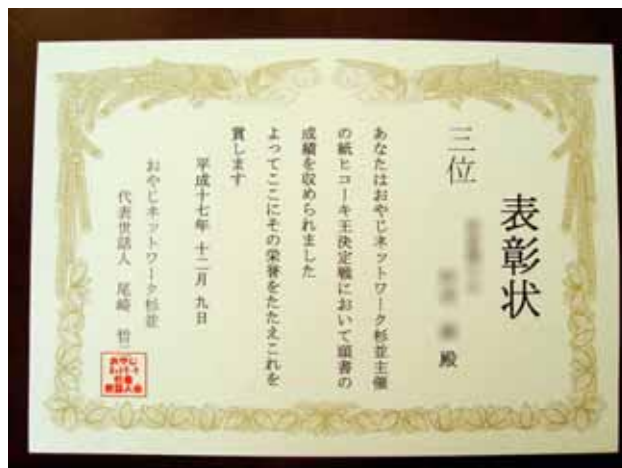 表彰状
三位
殿
あなたはおやじネットワーク杉並主催
の紙ヒコーキ王決定戦において頭書の
成績を収められました
よってここにその栄誉をたたえこれを
賞します
平成十七年 十二月 九日
おやじネットワーク杉並
代表世話人 尾崎 哲
おやじ
ネットワーク
杉並
世話人会